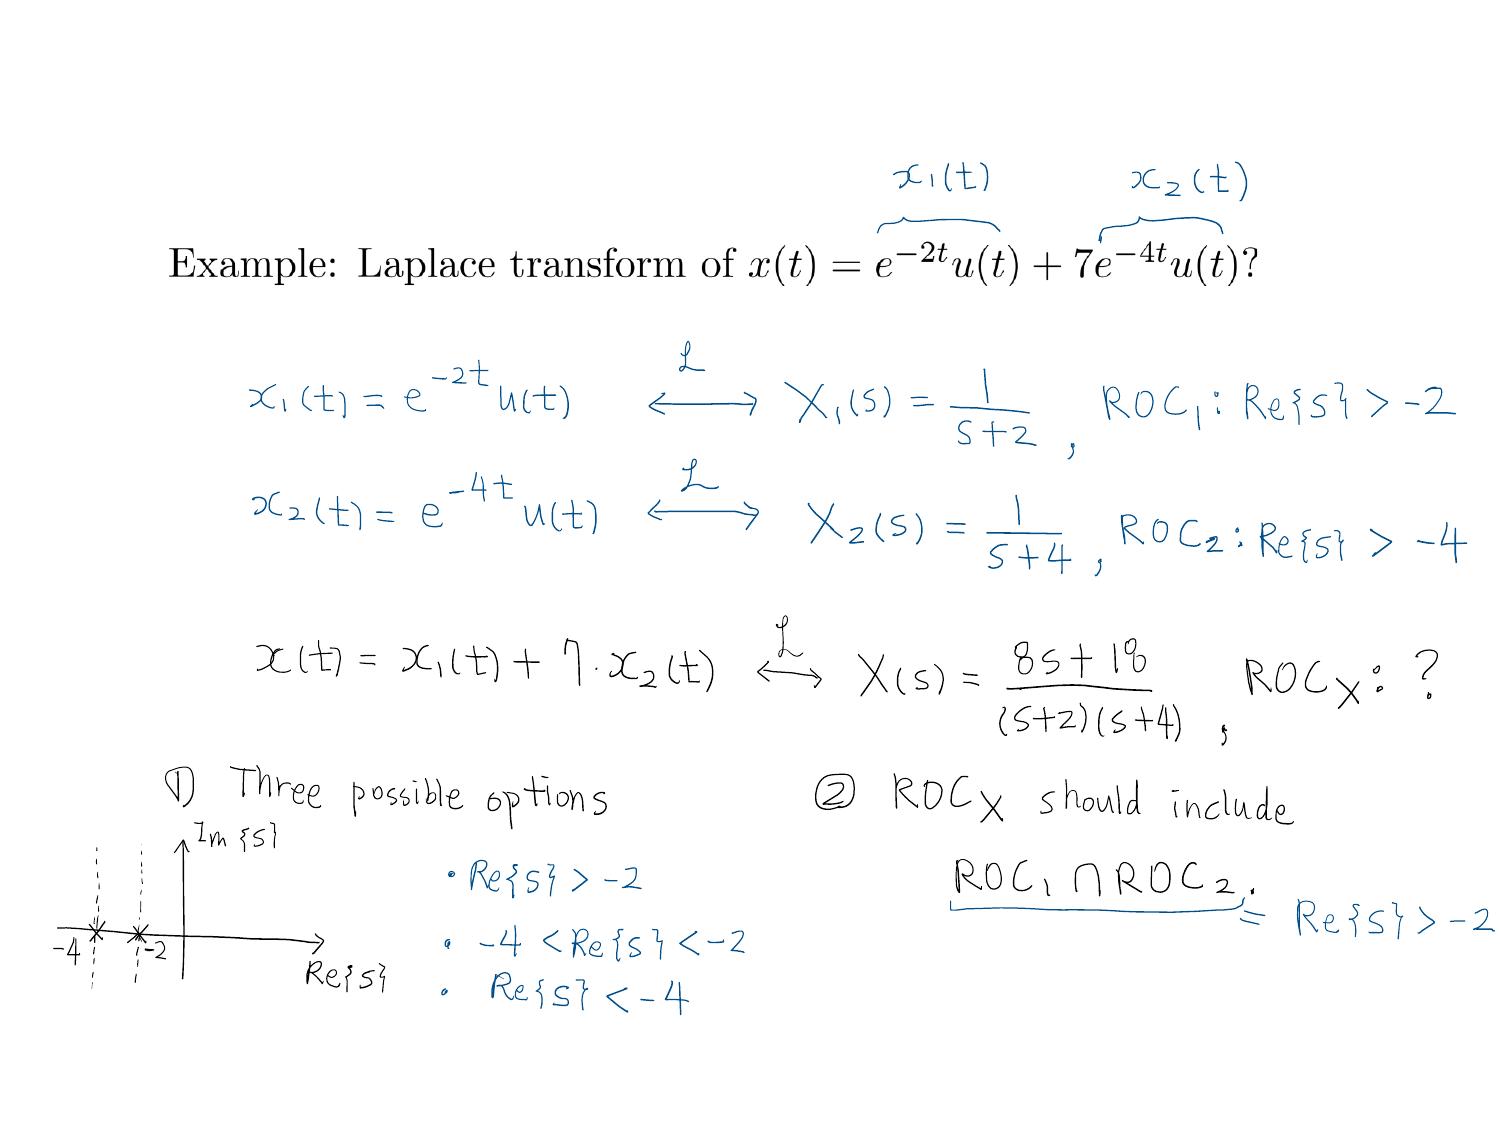 x₁(t) x₂(t)
Example: Laplace transform of x(t) = e^{−2t}u(t) + 7e^{−4t}u(t)?
x₁(t) = e^{-2t} u(t) ⟷^ℒ X₁(s) = 1/(s+2) , ROC₁: Re{s} > -2
x₂(t) = e^{-4t} u(t) ⟷^ℒ X₂(s) = 1/(s+4) , ROC₂: Re{s} > -4
x(t) = x₁(t) + 7·x₂(t) ⟷^ℒ X(s) = (8s+18)/((s+2)(s+4)) , ROC_X: ?
① Three possible options
Im{s}
-4 -2
Re{s}
• Re{s} > -2
• -4 < Re{s} < -2
• Re{s} < -4
② ROC_X should include
ROC₁ ∩ ROC₂. = Re{s} > -2